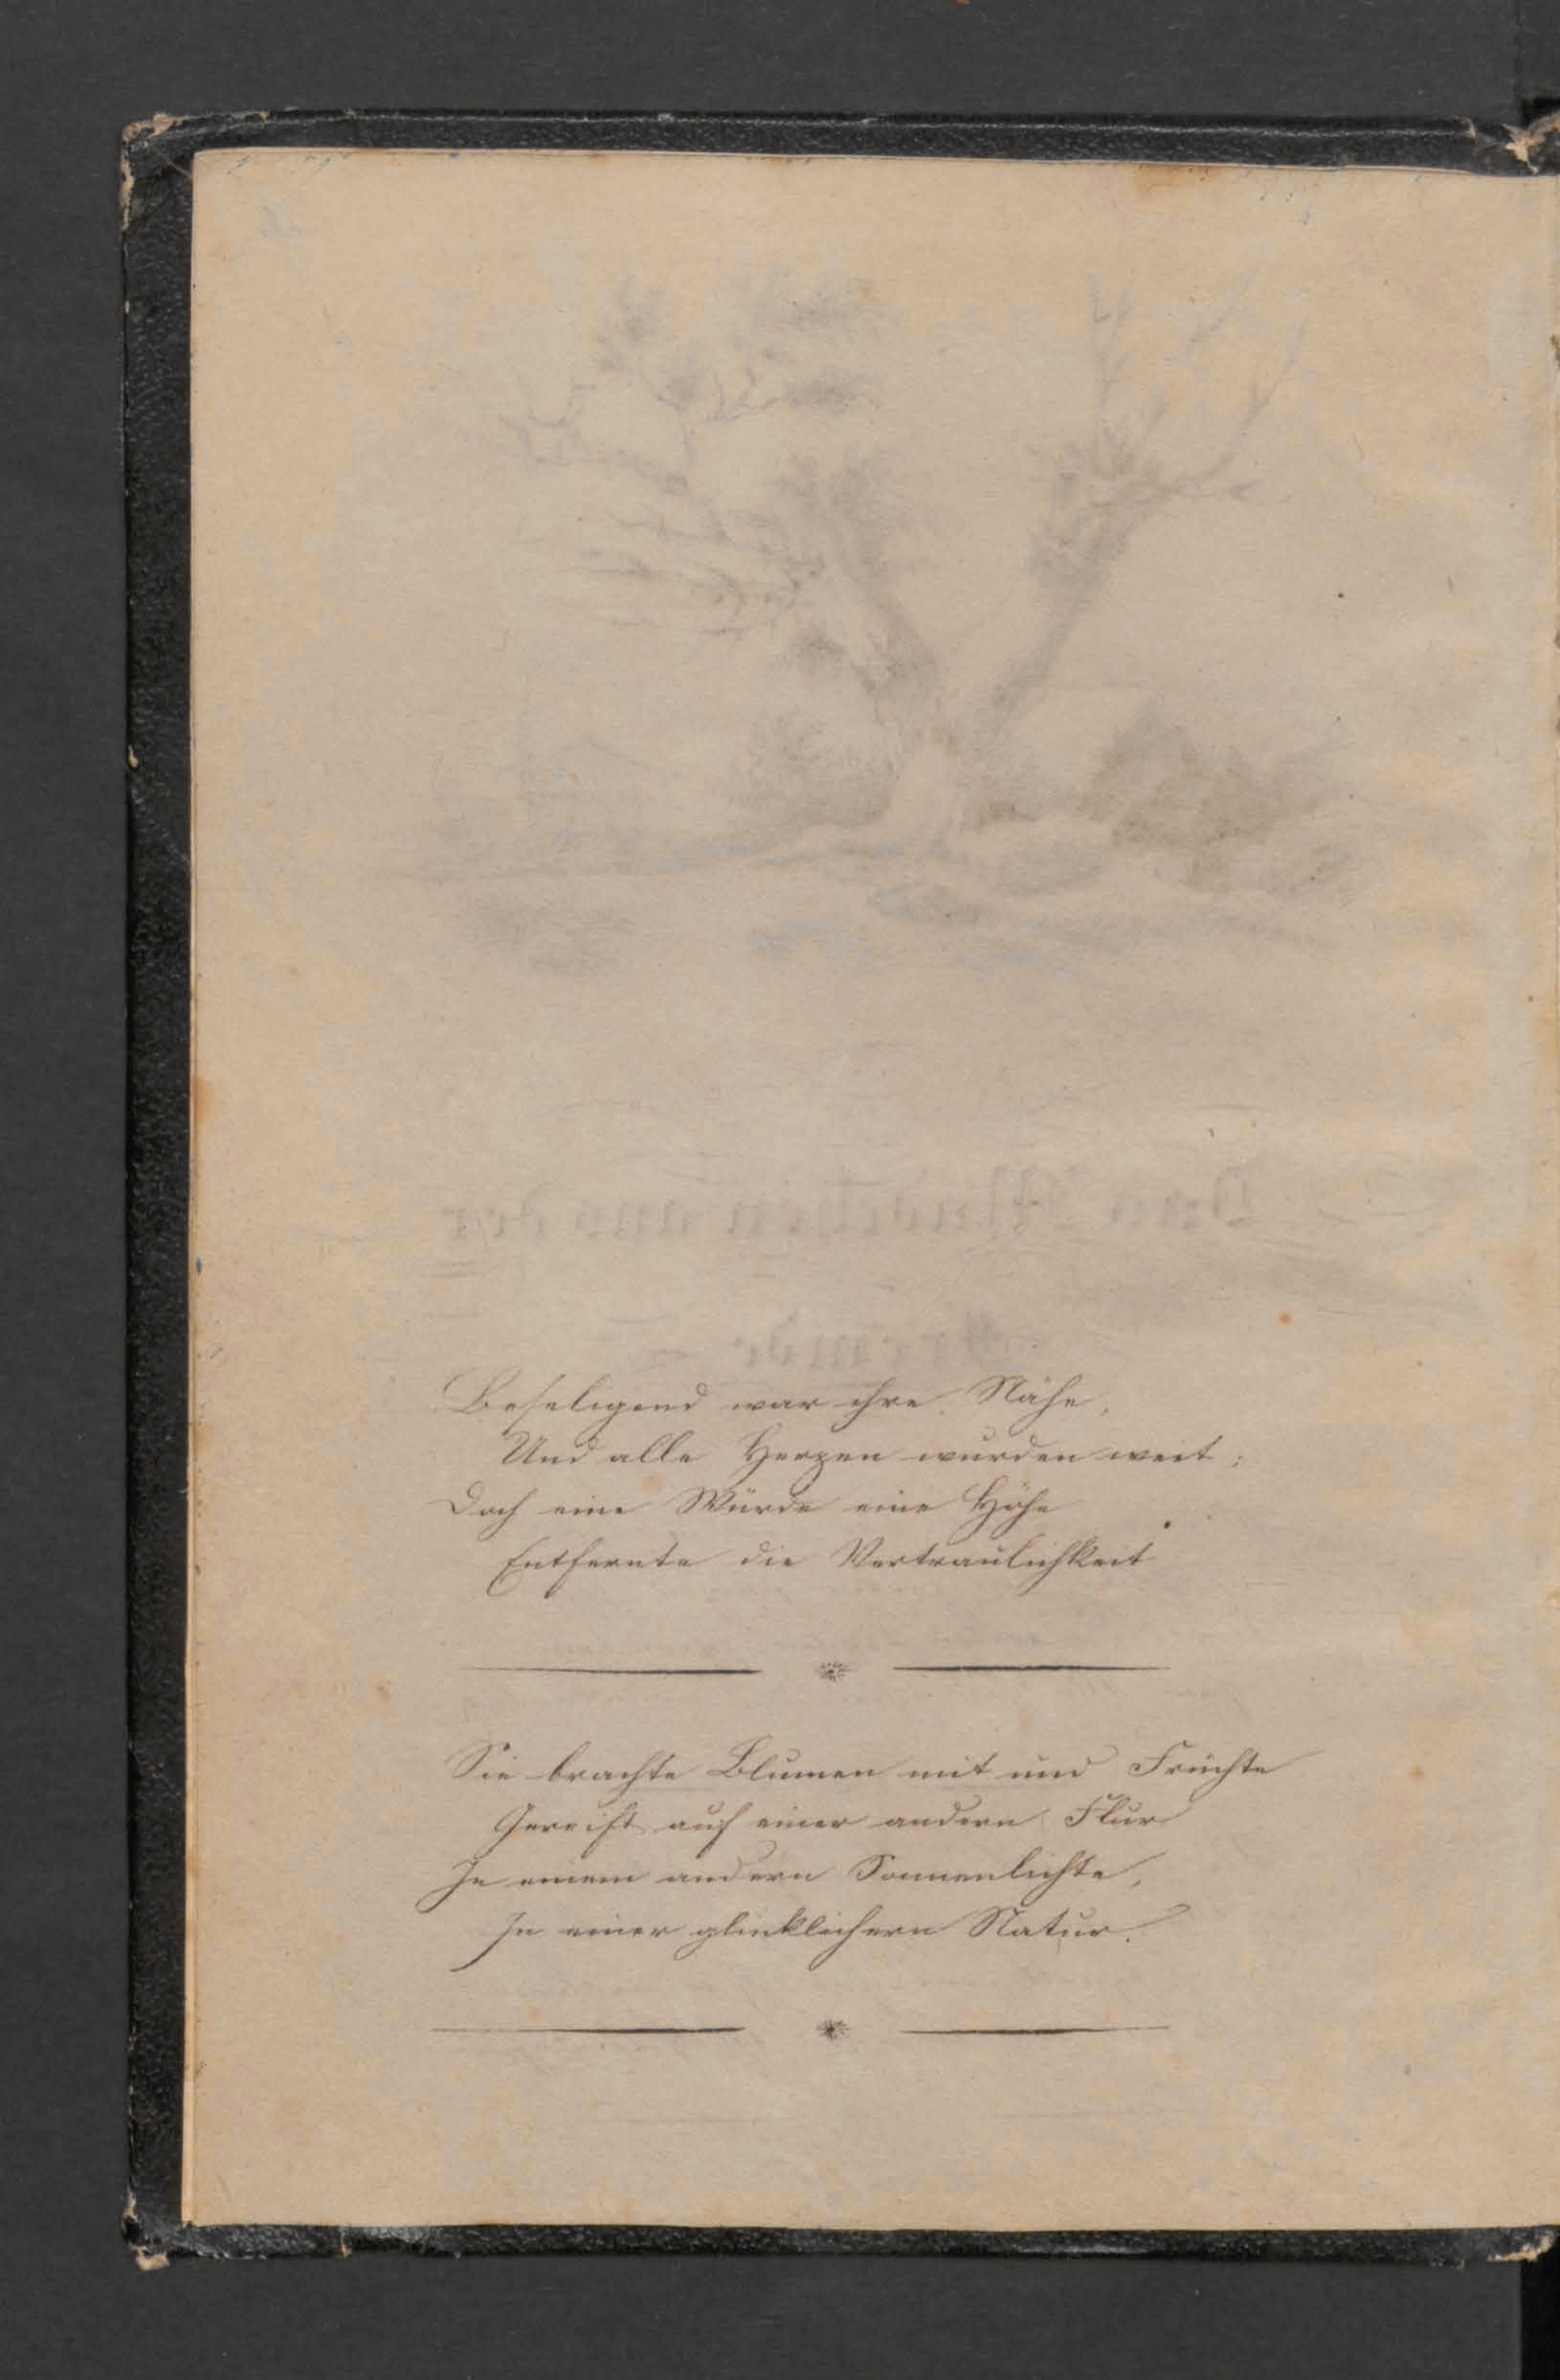 Beseligend war ihre Nähe,
Und alle Herzen wurden weit;
Doch eine Würde eine Höhe
Entfernte die Vertraulichkeit
Sie brachte Blumen mit und Früchte
Gereift auf einer andern Flur
In einem andern Sonnenlichte,
In einer glücklichern Natur.